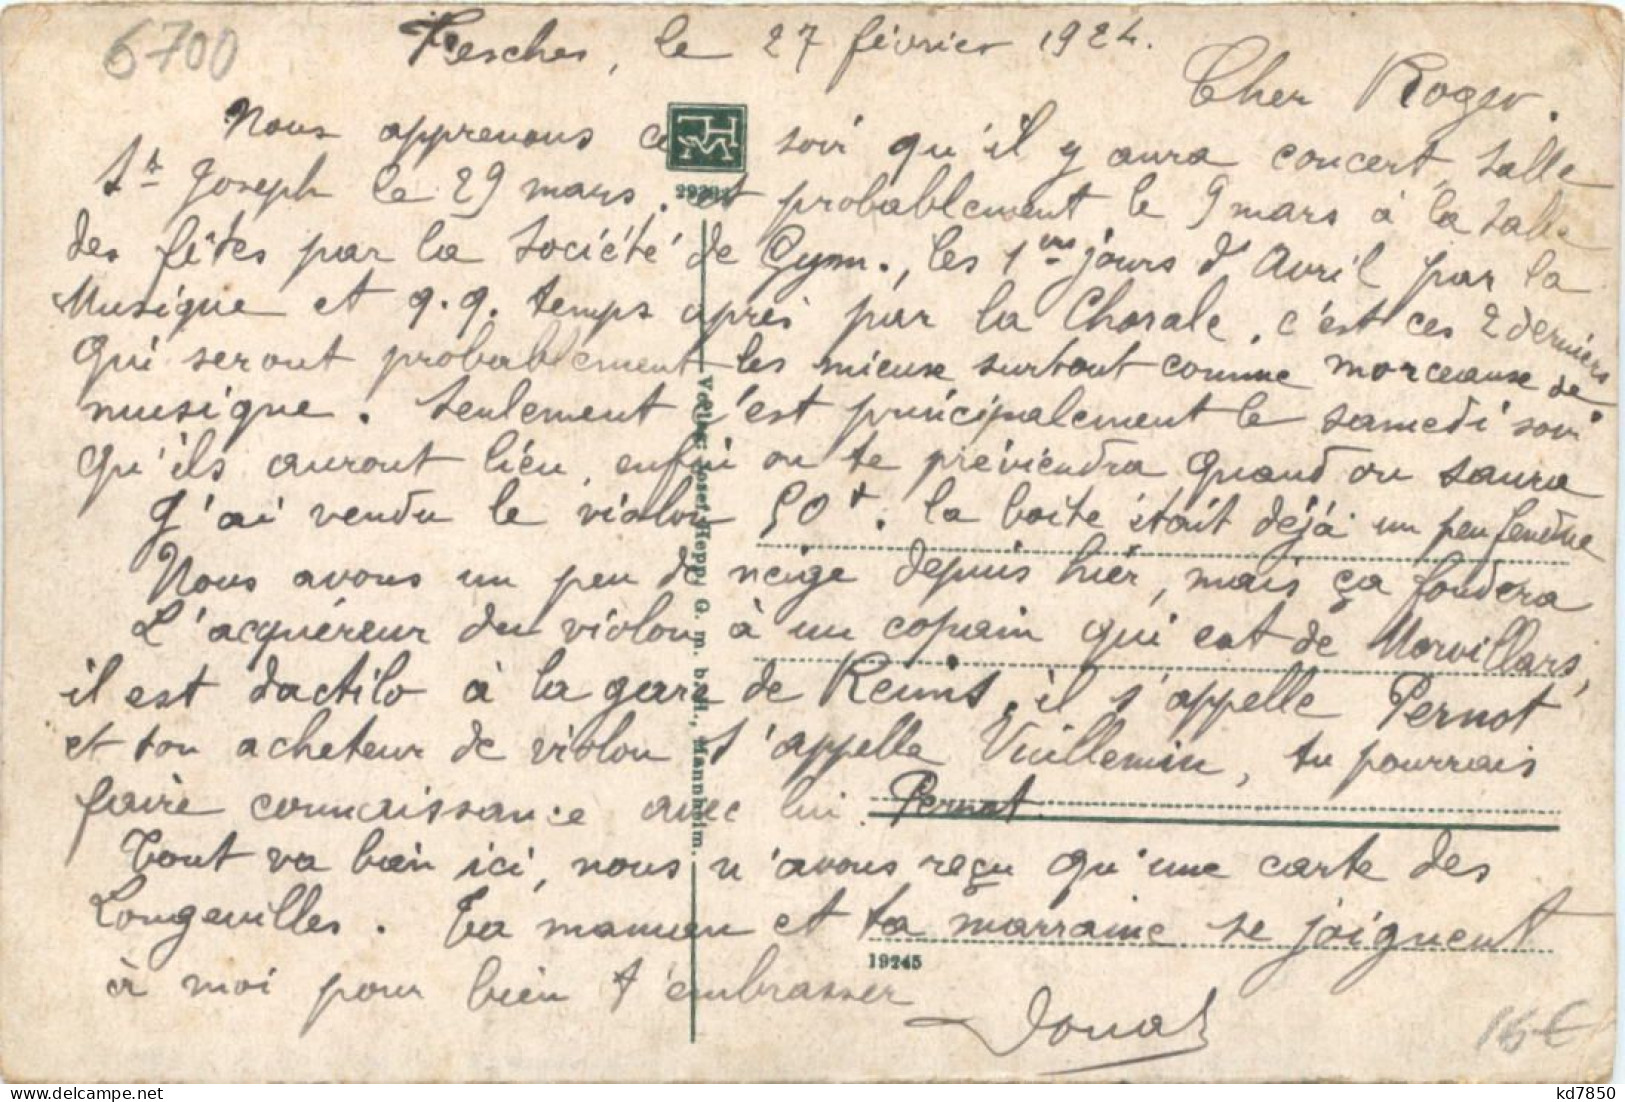 6700
Fesches, le 27 février 1924.
Cher Roger.
Nous apprenons ce soir qu'il y aura concert, salle
St Joseph le 29 mars, et probablement le 9 mars à la salle
des fêtes par la société de Gym., les 1ers jours d'Avril par la
Musique et q.q. temps après par la Chorale, c'est ces 2 derniers
qui seront probablement les mieux surtout comme morceaux de
musique. Seulement c'est principalement le samedi soir
qu'ils auront lieu, enfin on te préviendra quand on saura
J'ai vendu le violon 50f. la boîte était déjà un peu fendue
Nous avons un peu de neige depuis hier, mais ça fondera
L'acquéreur du violon à un copain qui est de Morvillars,
il est dactilo à la gare de Reims, il s'appelle Pernot
et ton acheteur de violon s'appelle Vuillemin, tu pourrais
faire connaissance avec lui Pernot.
Tout va bien ici, nous n'avons reçu qu'une carte des
Longevilles. Ta maman et ta marraine se joignent
à moi pour bien t'embrasser
19245
Verlag Josef Hepp, G. m. b. H., Mannheim.
15€
kd7850